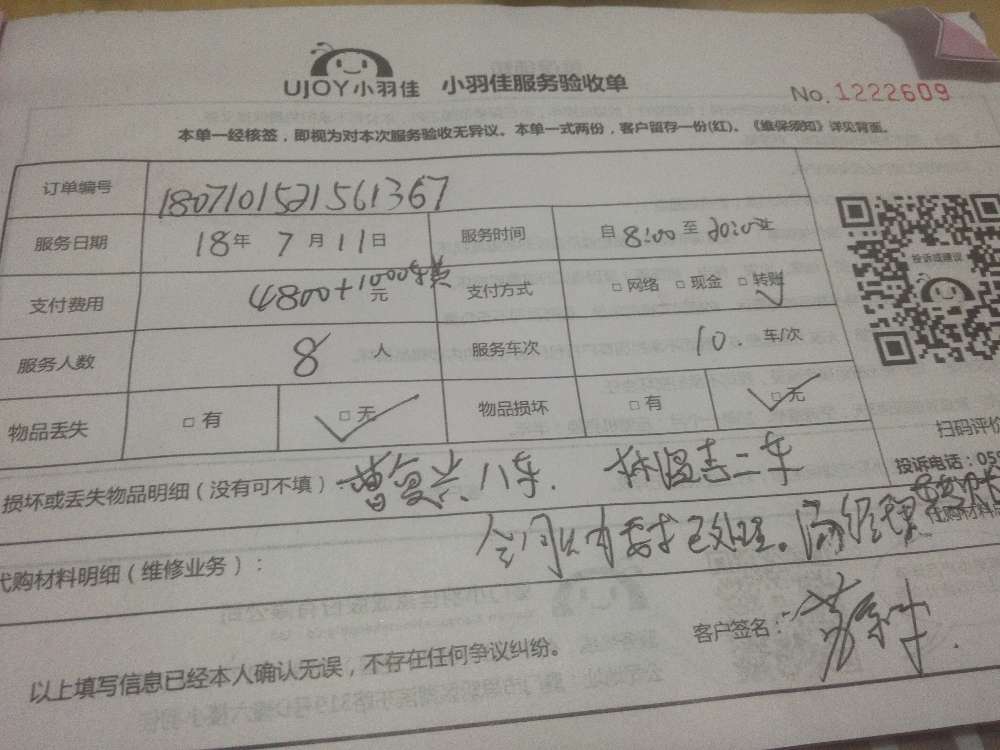 UJOY小羽佳 小羽佳服务验收单
No.1222609
本单一经核签，即视为对本次服务验收无异议。本单一式两份，客户留存一份(红)。《维保须知》详见背面。
订单编号 1807101521561367
服务日期 18年7月11日 服务时间 自8:00至20:0
支付费用 4800+1000车费元 支付方式 □网络 □现金 □转账
服务人数 8人 服务车次 10.车/次
物品丢失 □有 □无 物品损坏 □有 □无
投诉或建议
扫码评价
投诉电话：059
损坏或丢失物品明细（没有可不填）：曾复兴八车. 林温吉二车
代购材料明细（维修业务）：
已处理。经理
客户签名：
以上填写信息已经本人确认无误，不存在任何争议纠纷。